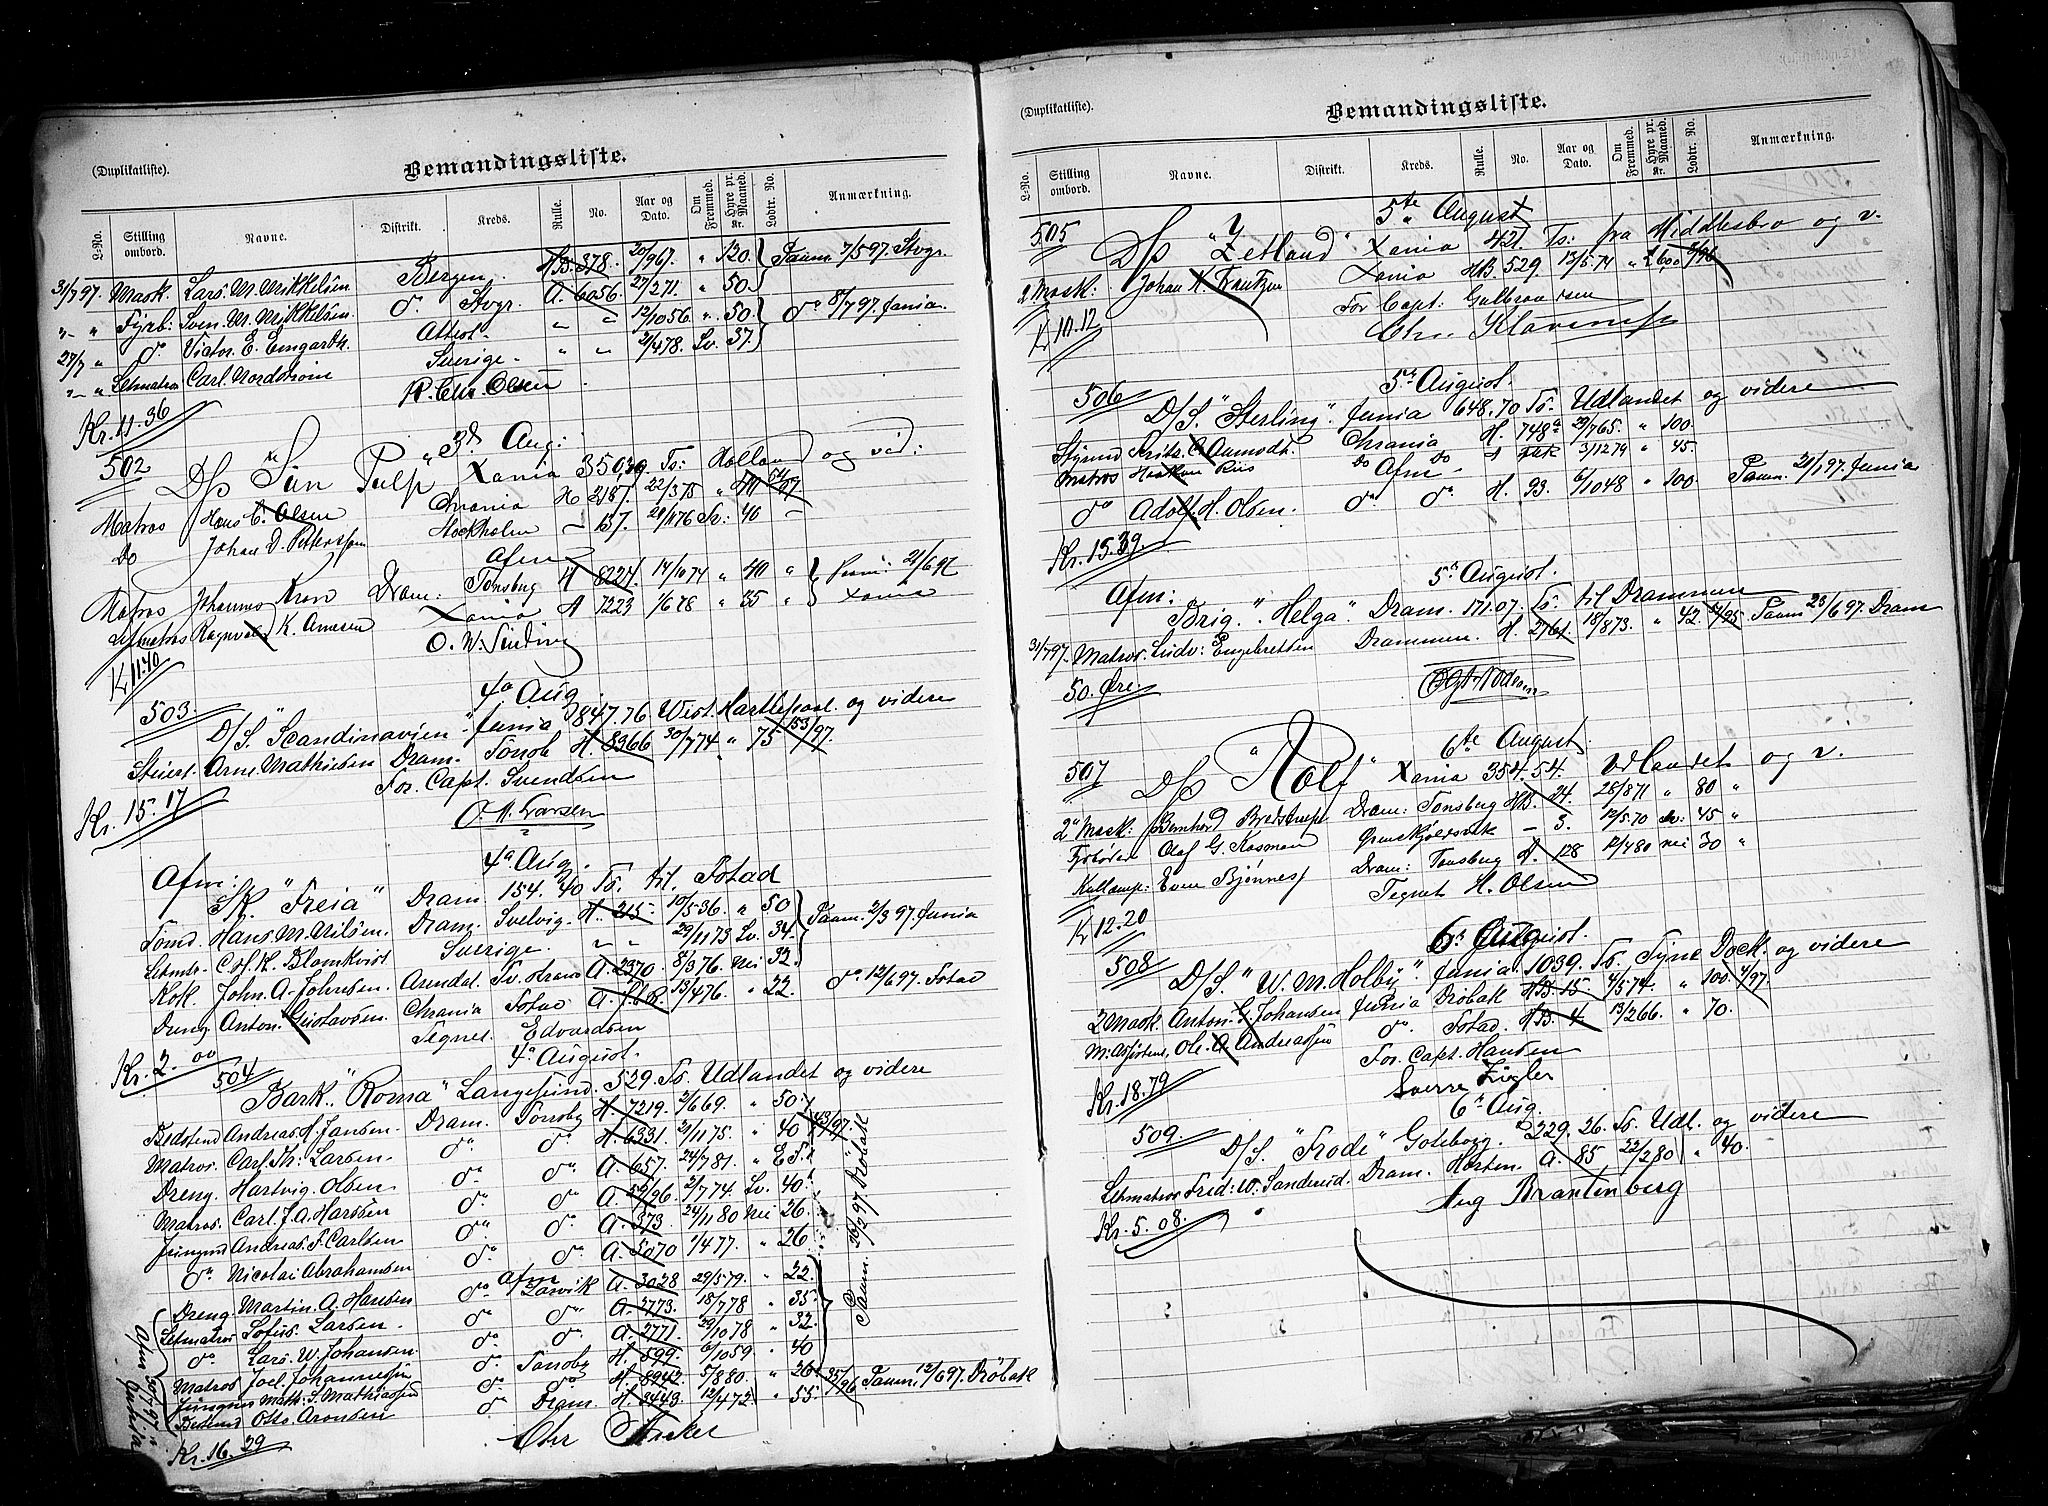 (Duplikatliste). Bemandingsliste.
L-No. Stilling ombord. Navne. Distrikt. Kreds. Rulle. No. Aar og Dato. Om Fremmed. Hyre pr. Maaned. Kr. Lodtr. No. Anmærkning.
31/7 97. Mask. Lars M. Mikkelsen Bergen HB. 378. 20/967. " 120. Paam. 7/5 97. Stvgr.
"- " Fyrb: Sven. M. Mikkelsen. do Stvgr. A. 6056. 27/271. " 50
27/7 " do Victor. E. Emgarth. Attest. " " 12/1056. " 50. do 8/7 97. Xania.
"- " Letmatros Carl. Nordstrøm Sverige. " " 2/478. Sv. 37.
P. Chr. Olsen
Kr. 11.36
502 3d Aug:
D/S "San Telp" Xania 350,39. Ts: Holland og vid:
Matros Hans C. Olsen Chrania H 2187. 22/375 " 40
Do Johan D. Pettersson Stockholm - 137. 28/1176 Sv: 40 -
Afm
Matros Johannes Dram: Tønsberg H 8227. 14/1074 " 40 " Paam: 21/6 97
Letmatros Ragnvald K. Arnesen Xania A 7223 1/678 " 35 " Xania
O. W. Sinding
Kr 11.70
503. 4de Aug.
D/S. "Scandinavien" Xania 847.76. West. Hartlepool. og videre
Stuert. Arne Mathiesen Dram. Tønsb. H. 8366 30/774 " 75 153/97.
For. Capt. Svendsen
O. M. Larsen
Kr. 15.17
4de Aug.
Afm: Sk. "Freia" Dram 154.40 Ts. til. Fstad
Tømd. Hans M. Nilsen. Dram. Svelvig. H. 215. 10/536. " 50 Paam. 2/3 97. Xania
Letmtr. C. H. K. Blomkvist Sverige. " " 29/1173 Sv. 34.
Kok. John. A. Johnsen. Arendal. A. 2370. 8/376. nei 32.
Dreng Anton. Gustavsen. Chrania Fstad A. 13/476. " 22. do 12/6 97. Fstad
Tegnet. Edvardsen
Kr. 2.00
504 4de August.
Bark. "Roma" Langesund. 529. Ts. Udlandet og videre
Bedstmd Andreas. H. Jansen. Dram. Tønsbg H. 7219. 2/669. " 50.
Matros. Carl. Th: Larsen. do do H. 6331. 21/1175. " 40 43/97.
Dreng. Hartvig. Olsen do do A. 657. 24/781. "
Matros. Carl. J. A. Hansen do do A. 59/96. 2/774. Sv. 40
Jungmd Andreas. P. Carlsen do do A. 373. 24/1180 nei 26.
do Nicolai Abrahamsen do do A. 5070 1/477. " 26
Afm
Dreng. Martin. A. Hansen do Larvik A. 3028 29/579. " 22.
Letmatros Sofus. Larsen. do do A. 2773. 18/778 " 35.
do Lars. W. Johansen do do A. 2771. 29/1078 " 32.
Matros Joel. Johannessen do Tønsbg H. 599. 6/1059 " 40
Jungmd Math: S. Mathiassen do do H. 8942 5/880. " 26 35/96 Paam. 12/6 97. Drøbak
Bedstmd Otto. Aronsen do Dram H. 12/472. " 55.
Paam. 20/2 97 Drøbak
Afm 30/7 97. i Xania
Kr. 16.29
(Duplikatliste). Bemandingsliste.
L-No. Stilling ombord. Navne. Distrikt. Kreds. Rulle. No. Aar og Dato. Om Fremmed. Hyre pr. Maaned. Kr. Lodtr. No. Anmærkning.
505 5te August
D/S "Zetland" Xania 421. Ts: fra Middlesbro og v.
2 Mask: Johan K. Frantzen Xania HB. 529. 13/5.74 " £ 6.
For Capt: Gulbrandsen
Kr 10.12
506 5te August.
D/S. "Sterling" Xania 648.70 Ts. Udlandet og videre
Styrmd Fritz. C. Aamodt. Chrania H. 748a 29/765. " 100.
Matros Haakon Riis do do 3/1279 " 45.
Afm
do Adolf. H. Olsen. do do H. 93. 6/1048 " 100. Paam. 21/1 97. Xania
Kr. 15.39.
5te August.
Afm: Brig. "Helga" Dram. 171.07. Ts. til Drammen
31/7 97. Matros. Ludv: Engebretsen Drammen. H. 2761. 18/873. " 42. 14/95. Paam 28/6 97. Dram
50. Øre.
507 6te August
D/S "Rolf" Xania 354.54. Udlandet og v.
2den Mask: Bernhard Dram: Tønsberg HB. 24. 28/871 " 80 "
Fyrbøter Olaf G. Rosman Ørnskjoldsvik - 3. 12/5.70 sv: 45 "
Kullemp: Even Bjønnes Dram: Tønsberg A. 128 12/480 nei 30 "
Tegnet H. Olsen
Kr 12.20
508 6te August.
D/S. "W. M. Holby" Xania. 1039. Ts. Tyne Dock. og videre
2 Mask. Anton. G. Johansen Xania Drøbak HB. 15. 4/574. " 100. 4/97.
M. Assistent, Ole. A. Andreassen do. Fstad. HB. 4 13/266. " 70.
For. Capt. Hansen
Sverre Zigler
Kr. 18.79
6te Aug.
509. D/S. "Frode" Gøteborg. 229.26. Ts. Udl. og videre
Letmatros Fred: W. Sanderud. Dram. Horten. A. 85. 22/280 " 40.
Aug Brantenberg
Kr. 5.08.